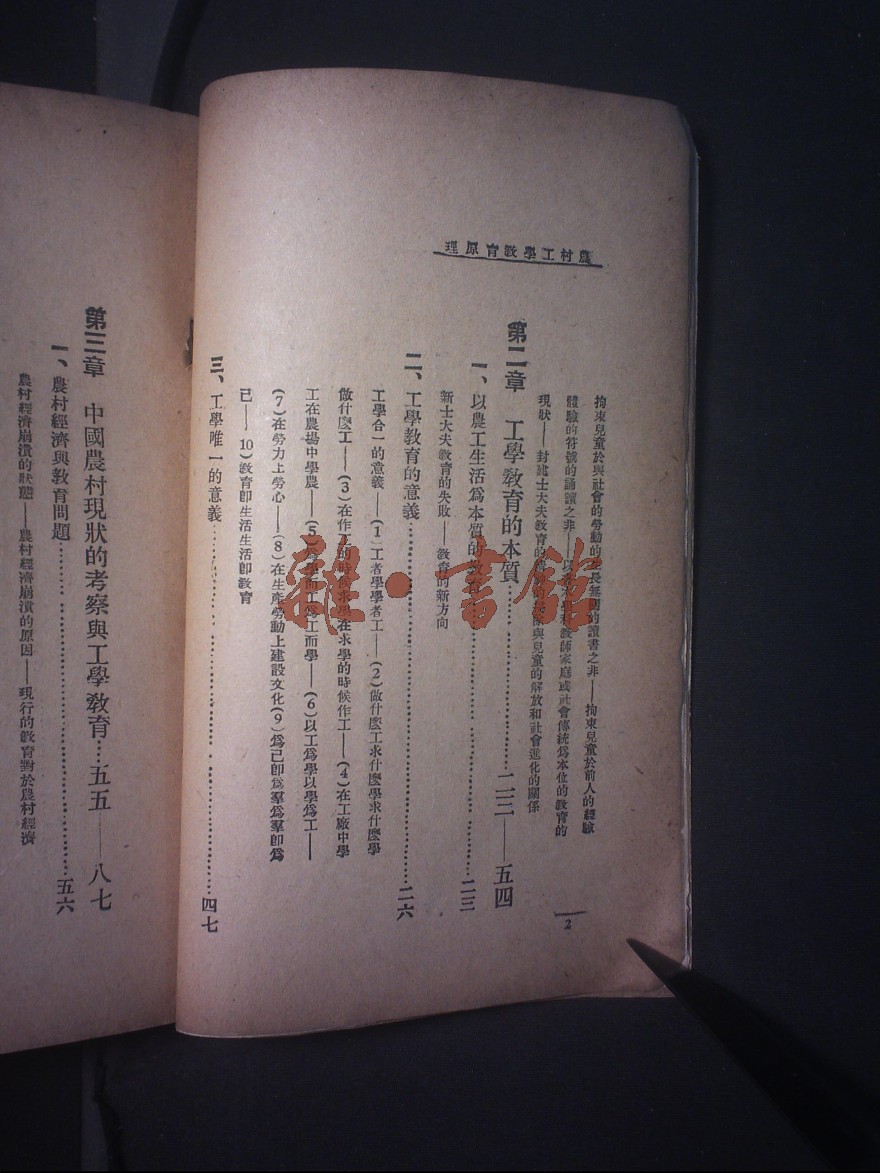 農村工學教育原理
拘束兒童於與社會的勞動的生長無關的讀書之非——拘束兒童於前人的經驗
體驗的符號的誦讀之非——以各教師家庭或社會傳統爲本位的教育的
現狀——封建士大夫教育的與兒童的解放和社會進化的關係
第二章 工學教育的本質……二二——五四
一、以農工生活爲本質的教育……二三
新士大夫教育的失敗——教育的新方向
二、工學教育的意義……二六
工學合一的意義——(1)工者學學者工——(2)做什麽工求什麽學求什麽學
做什麽工——(3)在作工的時候求學在求學的時候作工——(4)在工廠中學
工在農場中學農——(5)爲學而工爲工而學——(6)以工爲學以學爲工——
(7)在勞力上勞心——(8)在生產勞動上建設文化(9)爲己卽爲羣爲羣卽爲
己——10)敎育卽生活生活卽敎育
三、工學唯一的意義……四七
2
第三章 中國農村現狀的考察與工學敎育…五五——八七
一、農村經濟與敎育問題……五六
農村經濟崩潰的狀態——農村經濟崩潰的原因——現行的敎育對於農村經濟
雜·書館